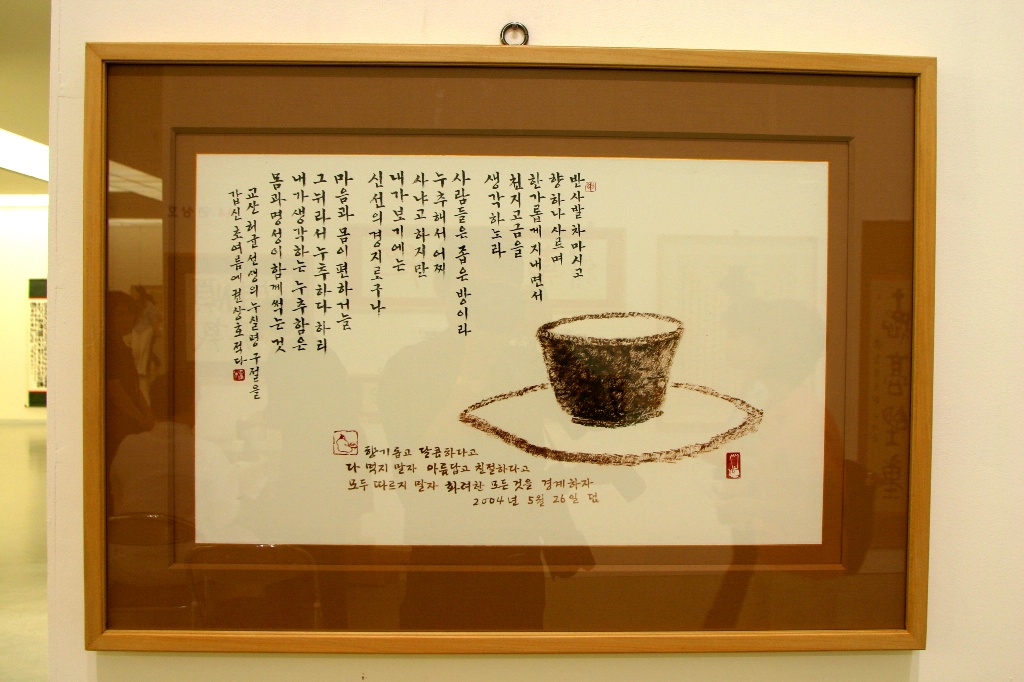 반사발 차 마시고
향 하나 사르며
한가롭게 지내면서
천지고금을
생각하노라
사람들은 좁은 방이라
누추해서 어찌
사냐고 하지만
내가 보기에는
신선의 경지로구나
마음과 몸이 편하거늘
그 뉘라서 누추하다 하리
내가 생각하는 누추함은
몸과 명성이 함께 썩는 것
교산 허균 선생의 누실명 구절을
갑신 초여름에 권상호 적다
향기롭고 달콤하다고
다 먹지 말자 아름답고 친절하다고
모두 따르지 말자 화려한 모든 것을 경계하자
2004년 5월 26일